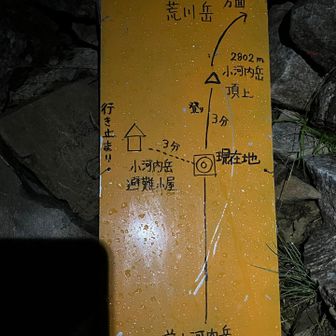 方面
荒川岳
2802m
小河内岳
頂上
登り
3分
行き止まり
3分
現在地
小河内岳
避難小屋
前小河内岳